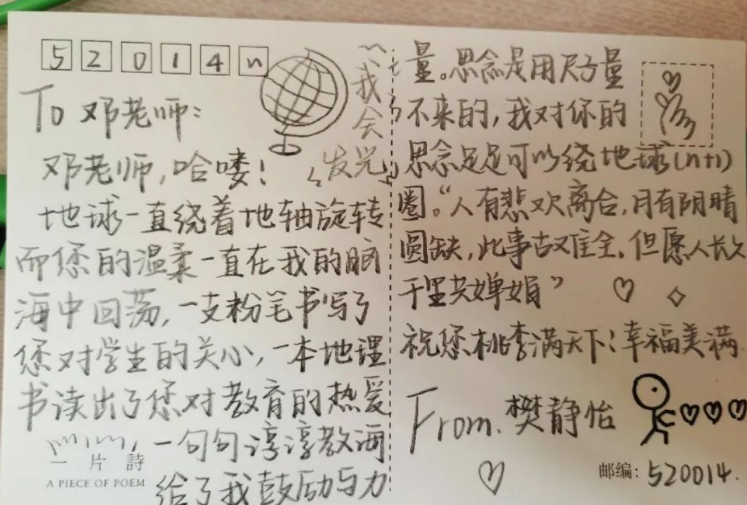 52014n
To 邓老师:
邓老师,哈喽!
地球一直绕着地轴旋转
而您的温柔一直在我的脑
海中回荡,一支粉笔书写了
您对学生的关心,一本地理
书读出了您对教育的热爱
,一句句谆谆教海
给了我鼓励与力
一片詩
A PIECE OF POEM
我会
发光
量。思念是用尺子量
不来的,我对你的
思念足足可以绕地球(n+1)
圈。“人有悲欢离合,月有阴晴
圆缺,此事古难全。但愿人长久
千里共婵娟”
祝您桃李满天下!幸福美满.
From.樊静怡
邮编: 520014.